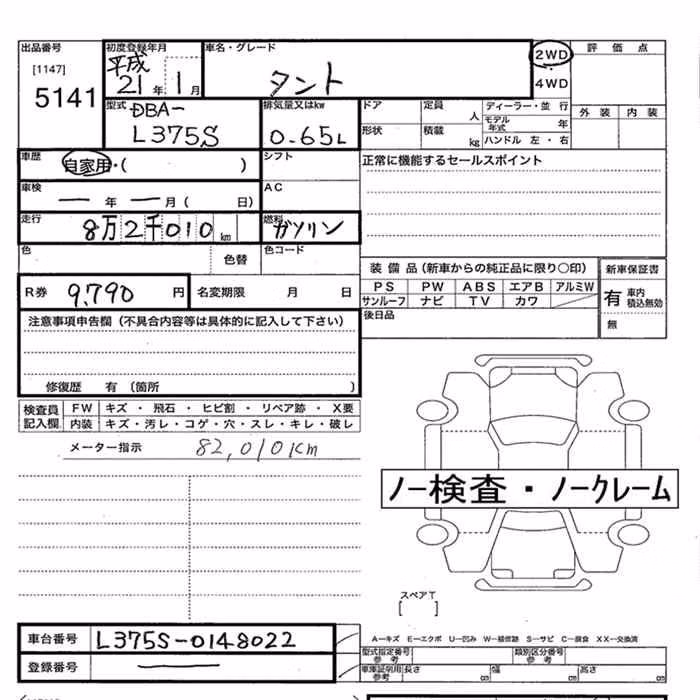 出品番号
[1147]
5141
初度登録年月
平成
21年 1月
車名・グレード
タント
2WD
4WD
評価点
外装 内装
型式
DBA-
L375S
排気量又はkw
0.65L
ドア
定員 人
ディーラー・並行
モデル年式 年
形状
積載 kg
ハンドル 左・右
車歴
自家用・( )
シフト
正常に機能するセールスポイント
車検
― 年 ― 月 ( 日)
AC
走行
8万2千010km
燃料
ガソリン
色
色替
色コード
装備品(新車からの純正品に限り○印)
新車保証書
PS PW ABS エアB アルミW
サンルーフ ナビ TV カワ
有 車内積込無効
無
R券 9,790 円
名変期限 月 日
後日品
注意事項申告欄(不具合内容等は具体的に記入して下さい)
修復歴 有 (箇所 )
検査員記入欄
FW キズ・飛石・ヒビ割・リペア跡・X要
内装 キズ・汚レ・コゲ・穴・スレ・キレ・破レ
メーター指示 82,010Km
ノー検査・ノークレーム
スペアT
[ ]
車台番号 L375S-0148022
登録番号 ―
A―キズ E―エクボ U―凹み W―補修跡 S―サビ C―腐食 XX―交換済
型式指定番号
参考
類別区分番号
参考
車庫証明用
参考
長さ cm 幅 cm 高さ cm